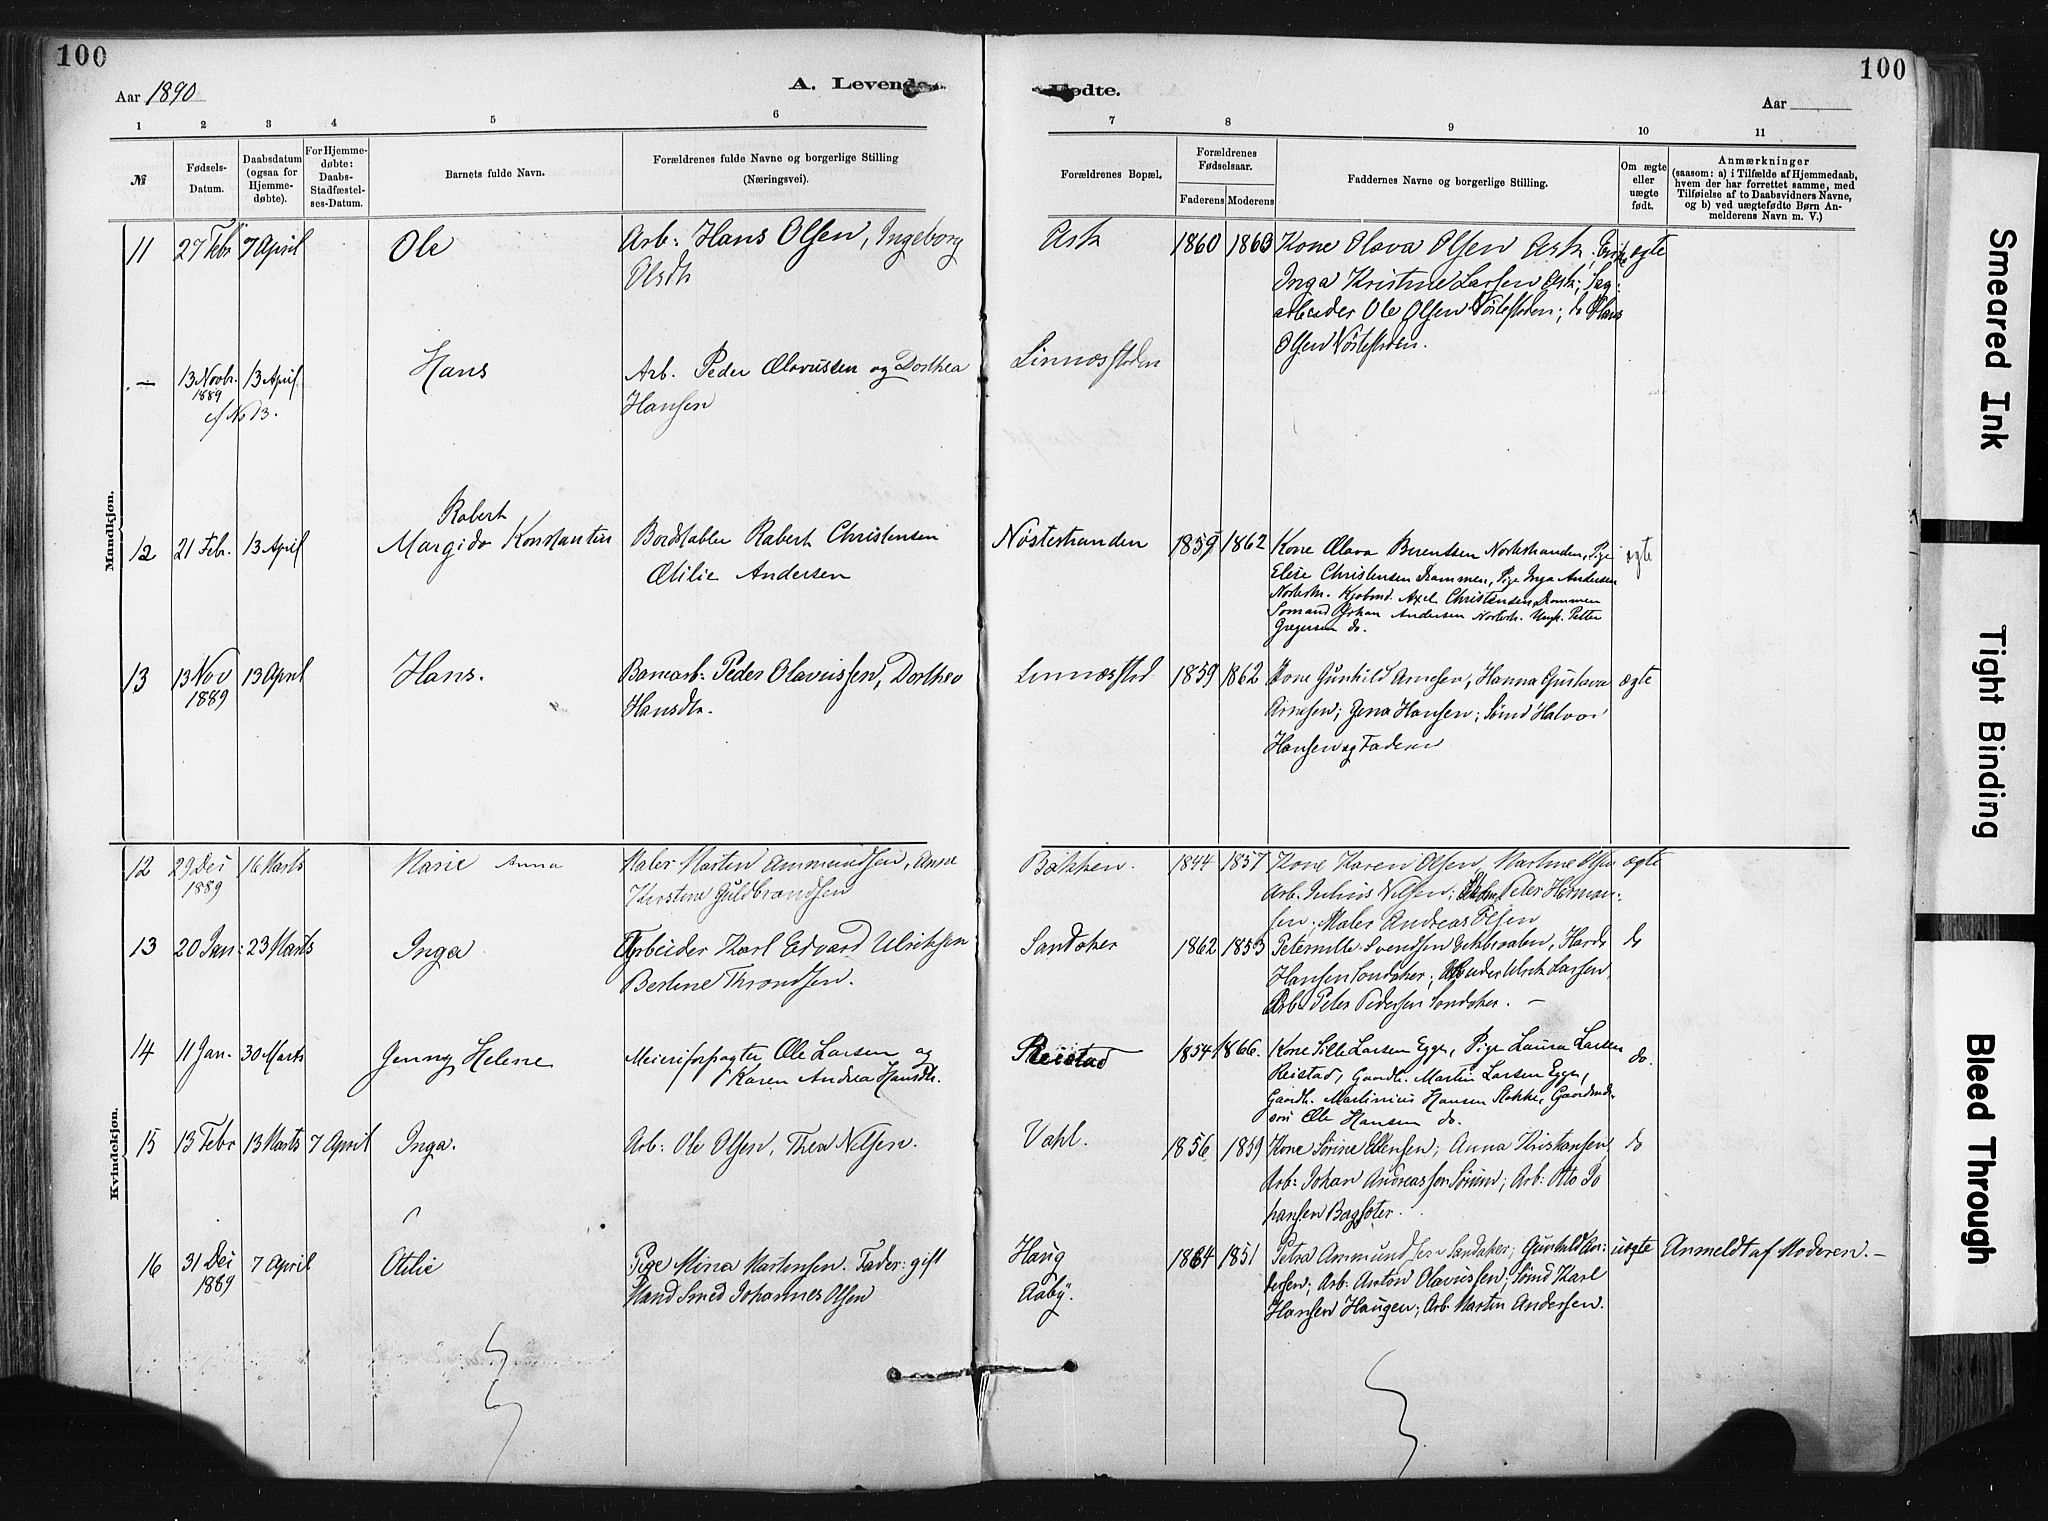 100
Aar 1890
A. Levende
1 2 3 4 5 6
№
Fødsels-
Datum.
Daabsdatum
(ogsaa for
Hjemme-
døbte).
For Hjemme-
døbte:
Daabs-
Stadfæstel-
ses-Datum.
Barnets fulde Navn.
Forældrenes fulde Navne og borgerlige Stilling
(Næringsvei).
Mandkjøn.
11 27 Febr 7 April Ole
Arb: Hans Olsen, Ingeborg
Olsdtr
— 13 Novbr. 1889 13 April Hans
cf No 13.
Arb. Peder Olavussen og Dorthea
Hansen
Robert
12 21 Feb. 13 April Margido Konstantin
Bordstabler Robert Christensen
Otilie Andersen
13 13 Nov 1889 13 April Hans.
Banearb: Peder Olavussen, Dorthea
Hansdtr.
Kvindekjøn.
12 29 Dei 1889 16 Marts Marie Anna
Maler Martin Ammundsen, Anne
Kirstine Guldbrandsen
13 20 Jan: 23 Marts Inga
Arbeider Karl Edvard Ulriksen
Berline Throndsen.
14 11 Jan. 30 Marts Jenny Helene
Meieriforpagter Ole Larsen og
Karen Andrea Hansdtr.
15 13 Febr 13 Marts 7 April Inga.
Arb: Ole Olsen, Thea Nilsen.
16 31 Dei 1889 7 April Otilie
Pige Mina Martensen. Fader: gift
Mand Smed Johannes Olsen
100
Fødte.
Aar
7 8 9 10 11
Forældrenes Bopæl.
Forældrenes
Fødselsaar.
Faderens Moderens
Faddernes Navne og borgerlige Stilling.
Om ægte
eller
uægte
født.
Anmærkninger
(saasom: a) i Tilfælde af Hjemmedaab,
hvem der har forrettet samme, med
Tilføielse af to Daabsvidners Navne,
og b) ved uægtefødte Børn An-
melderens Navn m. V.)
Ask 1860 1860 Kone Olava Olsen Ask; ægte
Inga Kristine Larsen Ask; Sag:
arbeider Ole Olsen Nøstestøden; do Hans
Olsen Nøstestøden.
Linnæsstøden
Nøstestranden 1859 1862 Kone Olava Berentsen Nøstestranden, Pige ægte
Elise Christensen Drammen, Pige Inga Andersen
Nøstestr. Kjøbmd. Axel Christensen Drammen
Sømand Johan Andersen Nøstestr. Ungk. Petter
Gregersen do.
Linnæsstød 1859 1862 Kone Gunhild Arnesen, Hanna Gustava ægte
Arnesen; Gena Hansen; Sømd Halvor
Hansen og Faderen
Bakken. 1844 1857 Kone Karen Olsen, Martine Olsen ægte
Arb. Julius Nilsen; Peter Herman:
sen; Maler Andreas Olsen
Sandaker 1862 1853 Peternille Svendsen Ekbraaten, do
Hansen Sandaker; Ulrik Larsen
Arb. Peter Pedersen Sandaker. —
Reistad 1854 1866. Kone Sille Larsen Egge, Pige Laura Larsen do.
Reistad, Gaardbr. Martin Larsen Egge,
Gaardbr. Martinius Hansen Stokke, Gaardmds-
søn Ole Hansen do.
Vahl. 1856 1859 Kone Sørine Ellensen; Anna Kristiansen, do
Arb: Johan Andreassen Sørum; Arb: Otto Jo
hansen Bagsæter.
Haug 1864 1851 Petra Ammundsen Sandaker; Gunhild An: uægte Anmeldt af Moderen. —
Aaby. dersen; Arb: Anton Olavussen; Sømd Karl
Hansen Haugen; Arb. Martin Andersen.
Smeared Ink
Tight Binding
Bleed Through